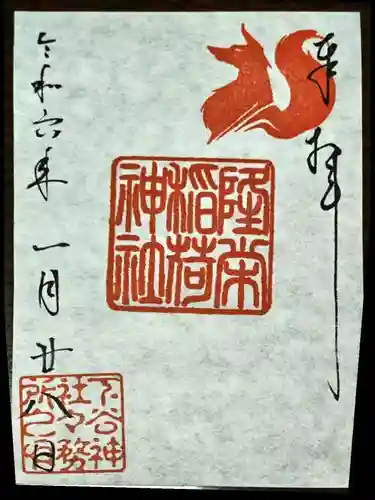 奉拝
隆栄
稲荷
神社
令和六年一月廿八日
下谷神
社々務
所之印